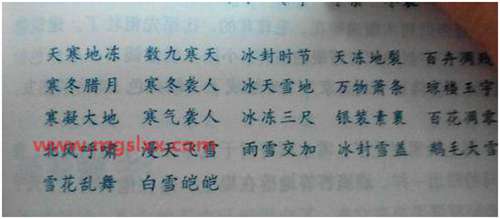 天寒地冻 数九寒天 冰封时节 天冻地裂 百卉凋残
寒冬腊月 寒冬袭人 冰天雪地 万物萧条 琼楼玉宇
寒凝大地 寒气袭人 冰冻三尺 银装素裹 百花凋零
www.mgslyx.com
北风呼啸 漫天飞雪 雨雪交加 冰封雪盖 鹅毛大雪
雪花乱舞 白雪皑皑